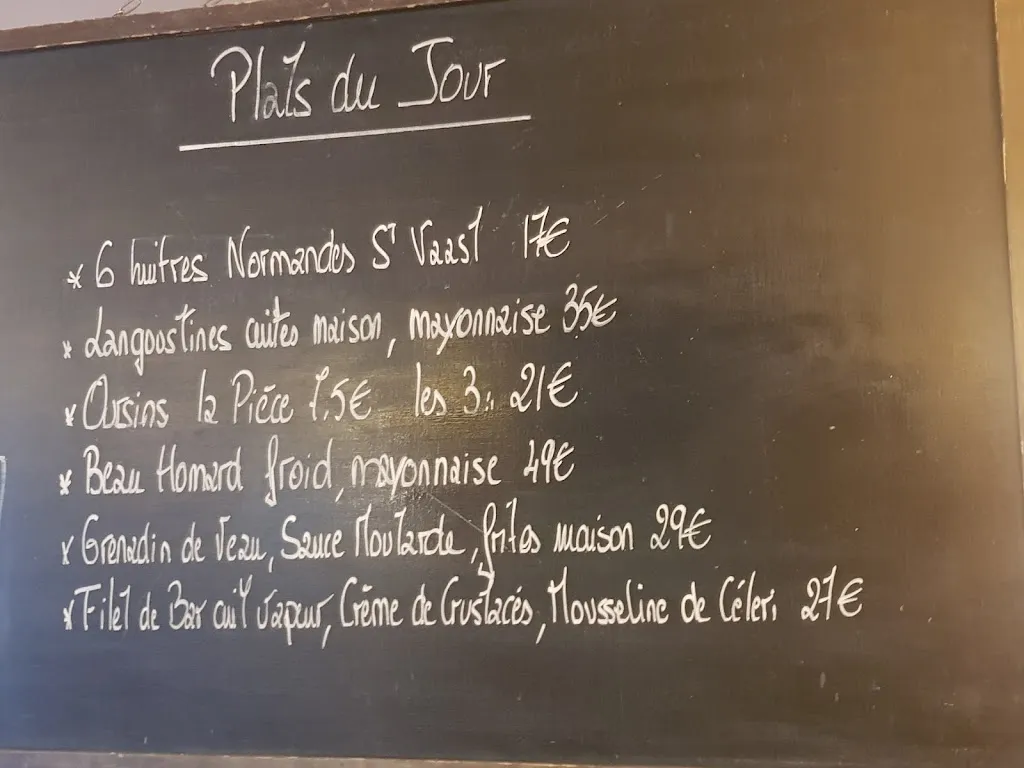 Plats du Jour
* 6 huitres Normandes St Vaast 17€
* Langoustines cuites maison, mayonnaise 35€
* Oursins la Pièce 7.5€ les 3: 21€
* Beau Homard froid, mayonnaise 49€
* Grenadin de Veau, Sauce Moutarde, frites maison 29€
* Filet de Bar cuit vapeur, Crème de Crustacés, Mousseline de Céleri 27€